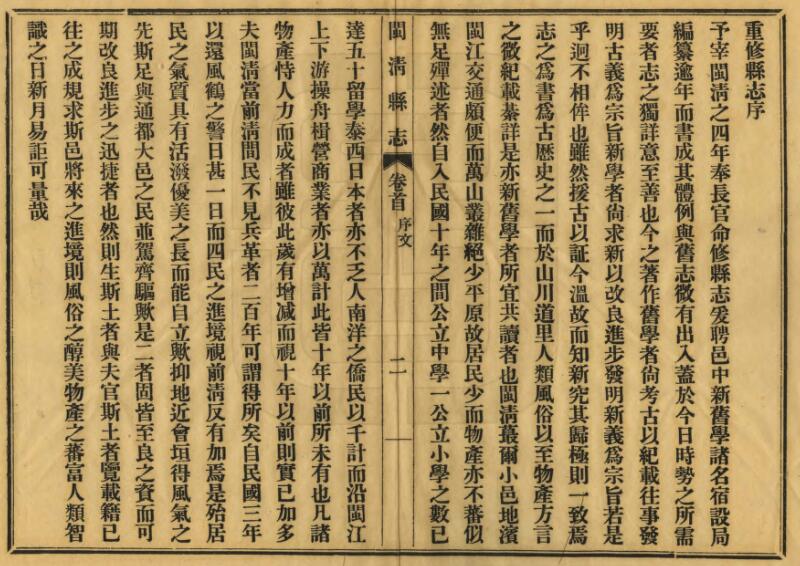 重修縣志序
予宰閩淸之四年奉長官命修縣志爰聘邑中新舊學諸名宿設局
編纂逾年而書成其體例與舊志微有出入蓋於今日時勢之所需
要者志之獨詳意至善也今之著作舊學者尙考古以紀載往事發
明古義爲宗旨新學者尙求新以改良進步發明新義爲宗旨若是
乎迥不相侔也雖然援古以証今溫故而知新究其歸極則一致焉
志之爲書爲古歷史之一而於山川道里人類風俗以至物產方言
之微紀載綦詳是亦新舊學者所宜共讀者也閩淸蕞爾小邑地濱
閩江交通頗便而萬山叢雜絕少平原故居民少而物產亦不蕃似
無足殫述者然自入民國十年之間公立中學一公立小學之數已
閩淸縣志 卷首 序文 二
達五十留學泰西日本者亦不乏人南洋之僑民以千計而沿閩江
上下游操舟楫營商業者亦以萬計此皆十年以前所未有也凡諸
物產恃人力而成者雖彼此歲有增減而視十年以前則實已加多
夫閩淸當前淸間民不見兵革者二百年可謂得所矣自民國三年
以還風鶴之警日甚一日而四民之進境視前淸反有加焉是殆居
民之氣質具有活潑優美之長而能自立歟抑地近會垣得風氣之
先斯足與通都大邑之民並駕齊驅歟是二者固皆至良之資而可
期改良進步之迅捷者也然則生斯土者與夫官斯土者覽載籍已
往之成規求斯邑將來之進境則風俗之醇美物產之蕃富人類智
識之日新月易詎可量哉